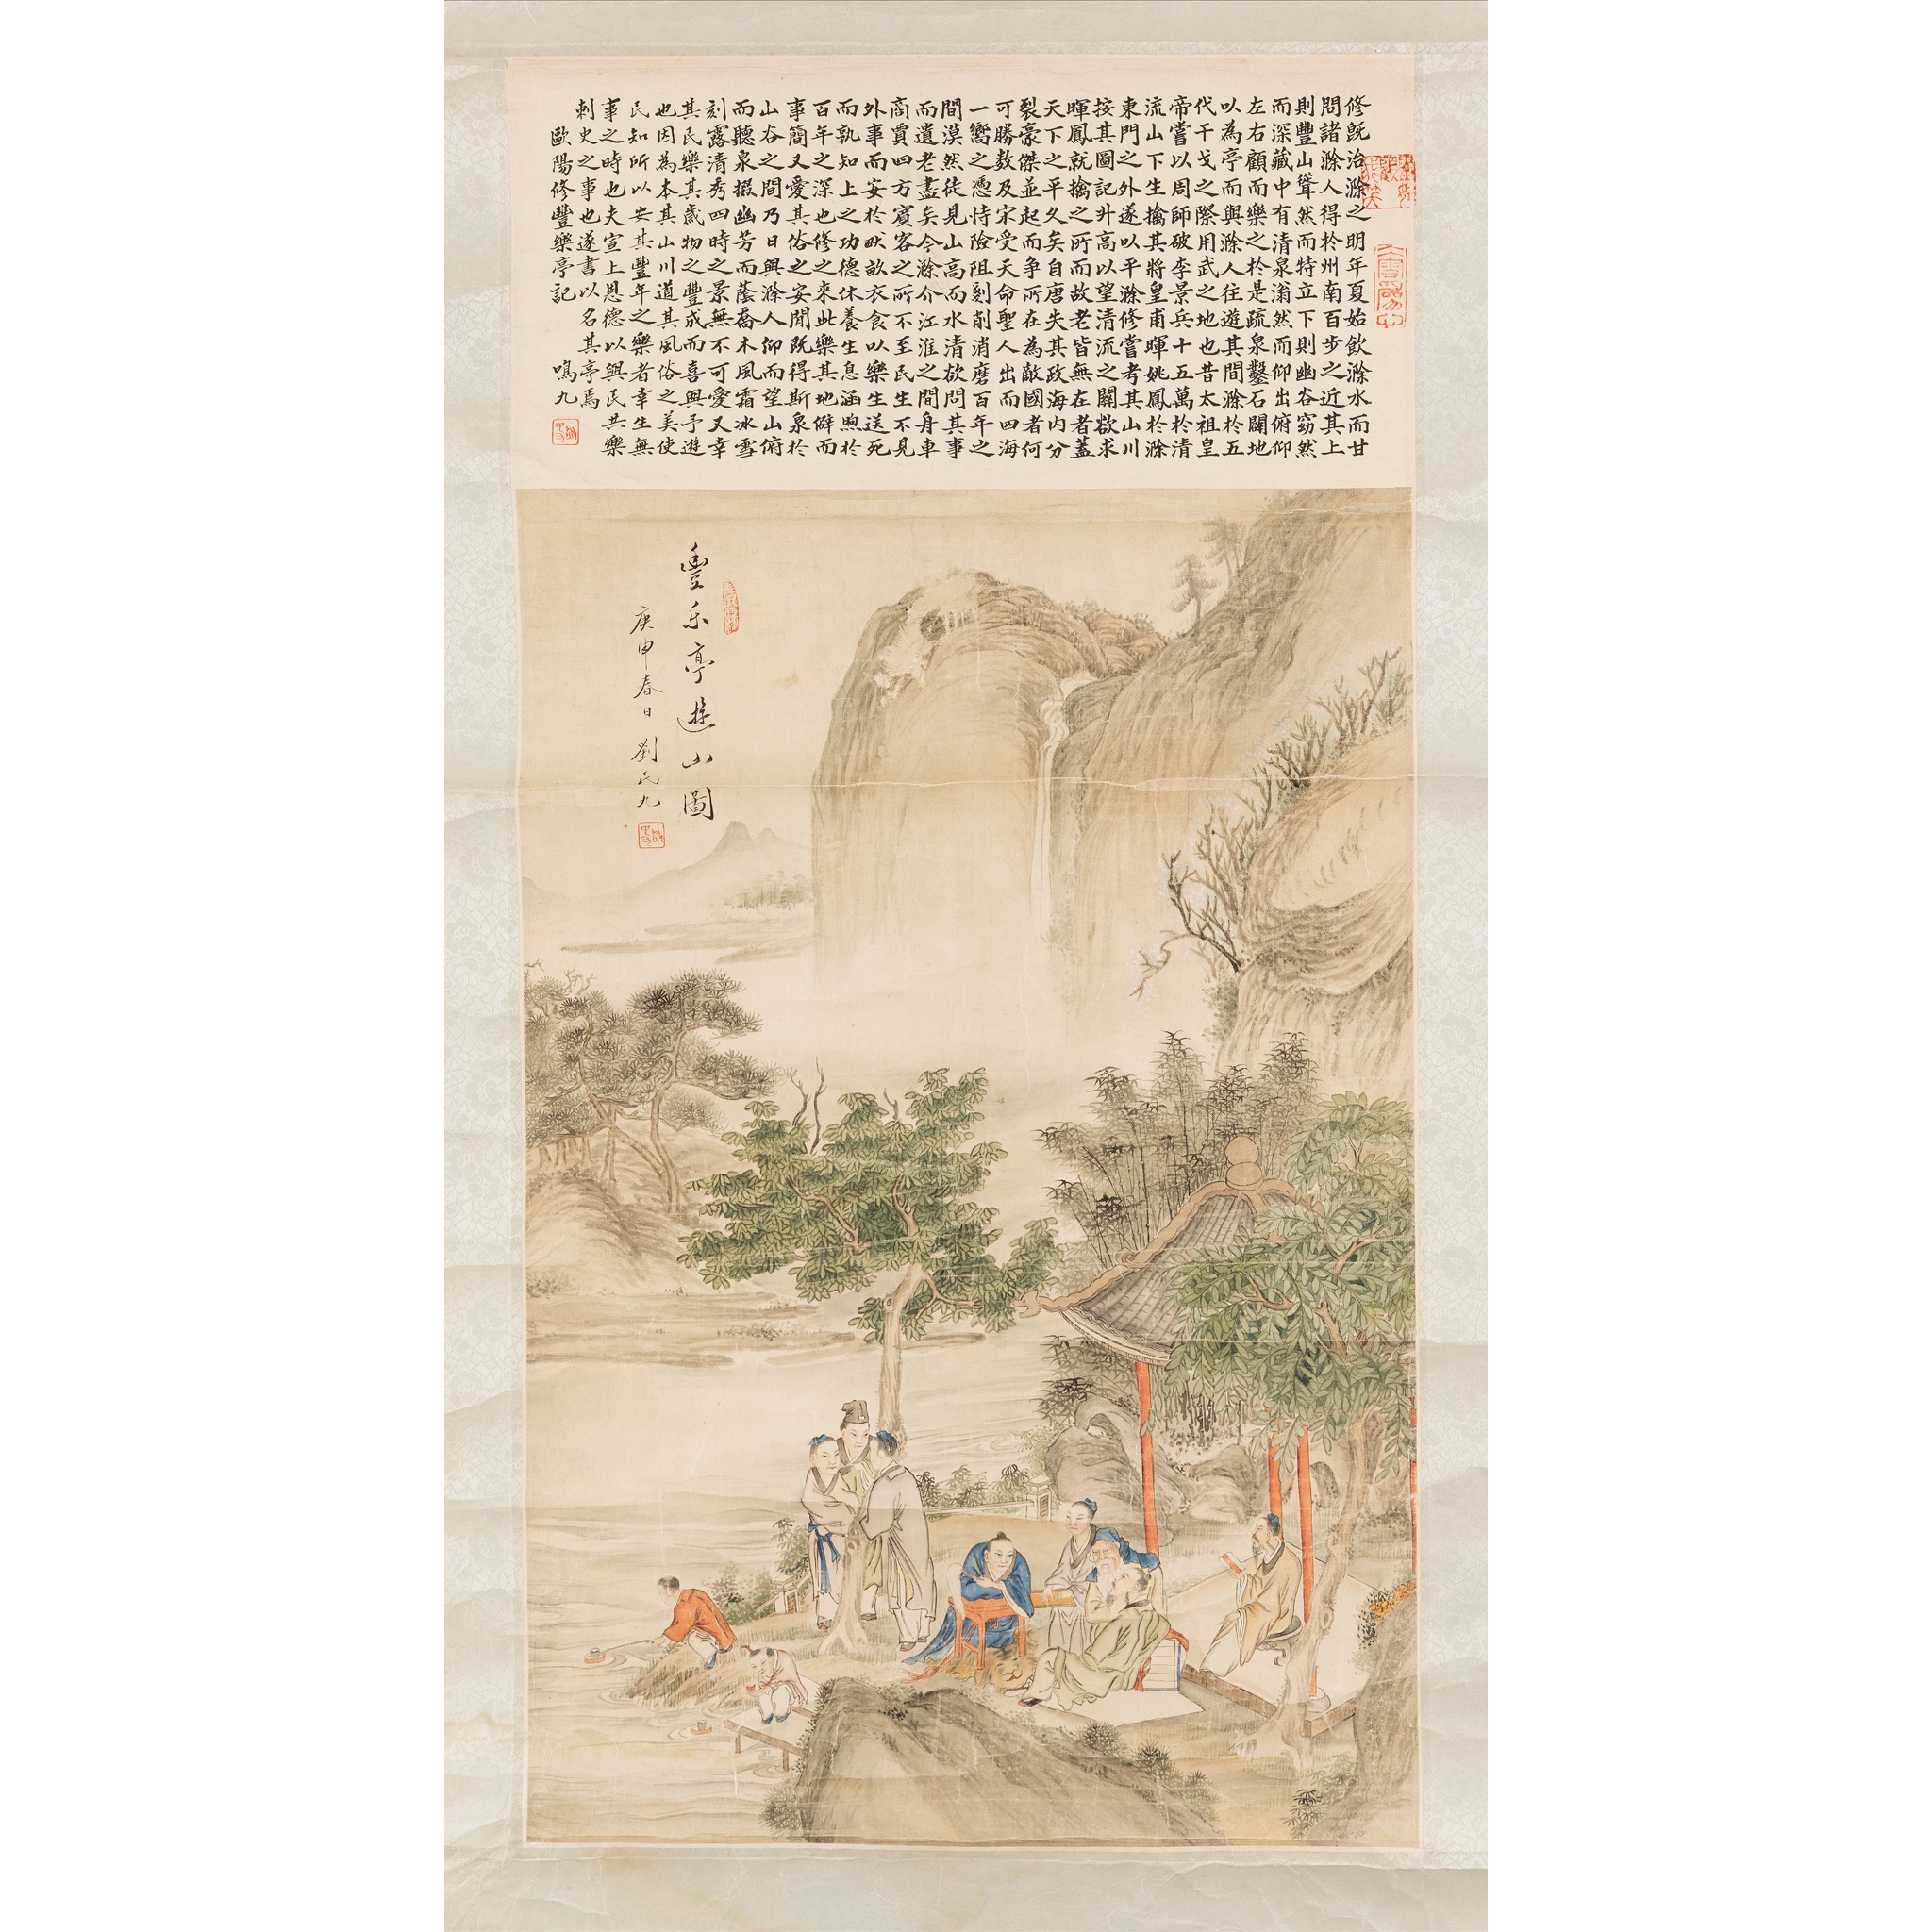 修既治滁之明年夏始飲滁水而甘
問諸滁人得於州南百步之近其上
則豐山聳然而特立下則幽谷窈然
而深藏中有清泉滃然而仰出俯仰
左右顧而樂之於是疏泉鑿石闢地
以為亭而與滁人往遊其間滁於五
代干戈之際用武之地也昔太祖皇
帝嘗以周師破李景兵十五萬於清
流山下生擒其將皇甫暉姚鳳於滁
東門之外遂以平滁修嘗考其山川
按其圖記升高以望清流之關欲求
暉鳳就擒之所而故老皆無在者蓋
天下之平久矣自唐失其政海內分
裂豪傑並起而爭所在為敵國者何
可勝数及宋受天命聖人出而四海
一嚮之憑恃險阻剗削消磨百年之
間漠然徒見山高而水清欲問其事
而遺老盡矣今滁介江淮之間舟車
商賈四方賓客之所不至民生不見
外事而安於畎畝衣食以樂生送死
而孰知上之功德休養生息涵煦於
百年之深也修之來此樂其地僻而
事簡又愛其俗之安閒既得斯泉於
山谷之間乃日與滁人仰而望山俯
而聽泉掇幽芳而蔭喬木風霜冰雪
刻露清秀四時之景無不可愛又幸
其民樂其歲物之豐成而喜與予遊
也因為本其山川道其風俗之美使
民知所以安其豐年之樂者幸生無
事之時也夫宣上恩德以與民共樂
刺史之事也遂書以名其亭焉
歐陽修豐樂亭記 鳴九
豐乐亭遊山圖
庚申春日 劉民九